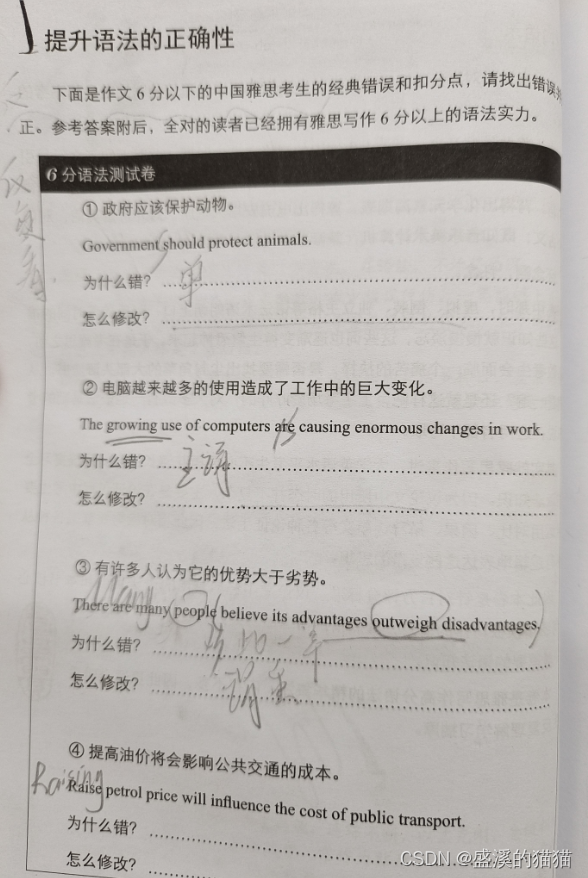 提升语法的正确性
下面是作文6分以下的中国雅思考生的经典错误和扣分点，请找出错误并
正。参考答案附后，全对的读者已经拥有雅思写作6分以上的语法实力。
6分语法测试卷
① 政府应该保护动物。
Government should protect animals.
为什么错？ 单
怎么修改？
② 电脑越来越多的使用造成了工作中的巨大变化。
The growing use of computers are causing enormous changes in work.
is
为什么错？ 主谓
怎么修改？
③ 有许多人认为它的优势大于劣势。
Many
There are many people believe its advantages outweigh disadvantages.
为什么错？
怎么修改？
④ 提高油价将会影响公共交通的成本。
Raising
Raise petrol price will influence the cost of public transport.
为什么错？
怎么修改？
CSDN @盛溪的猫猫